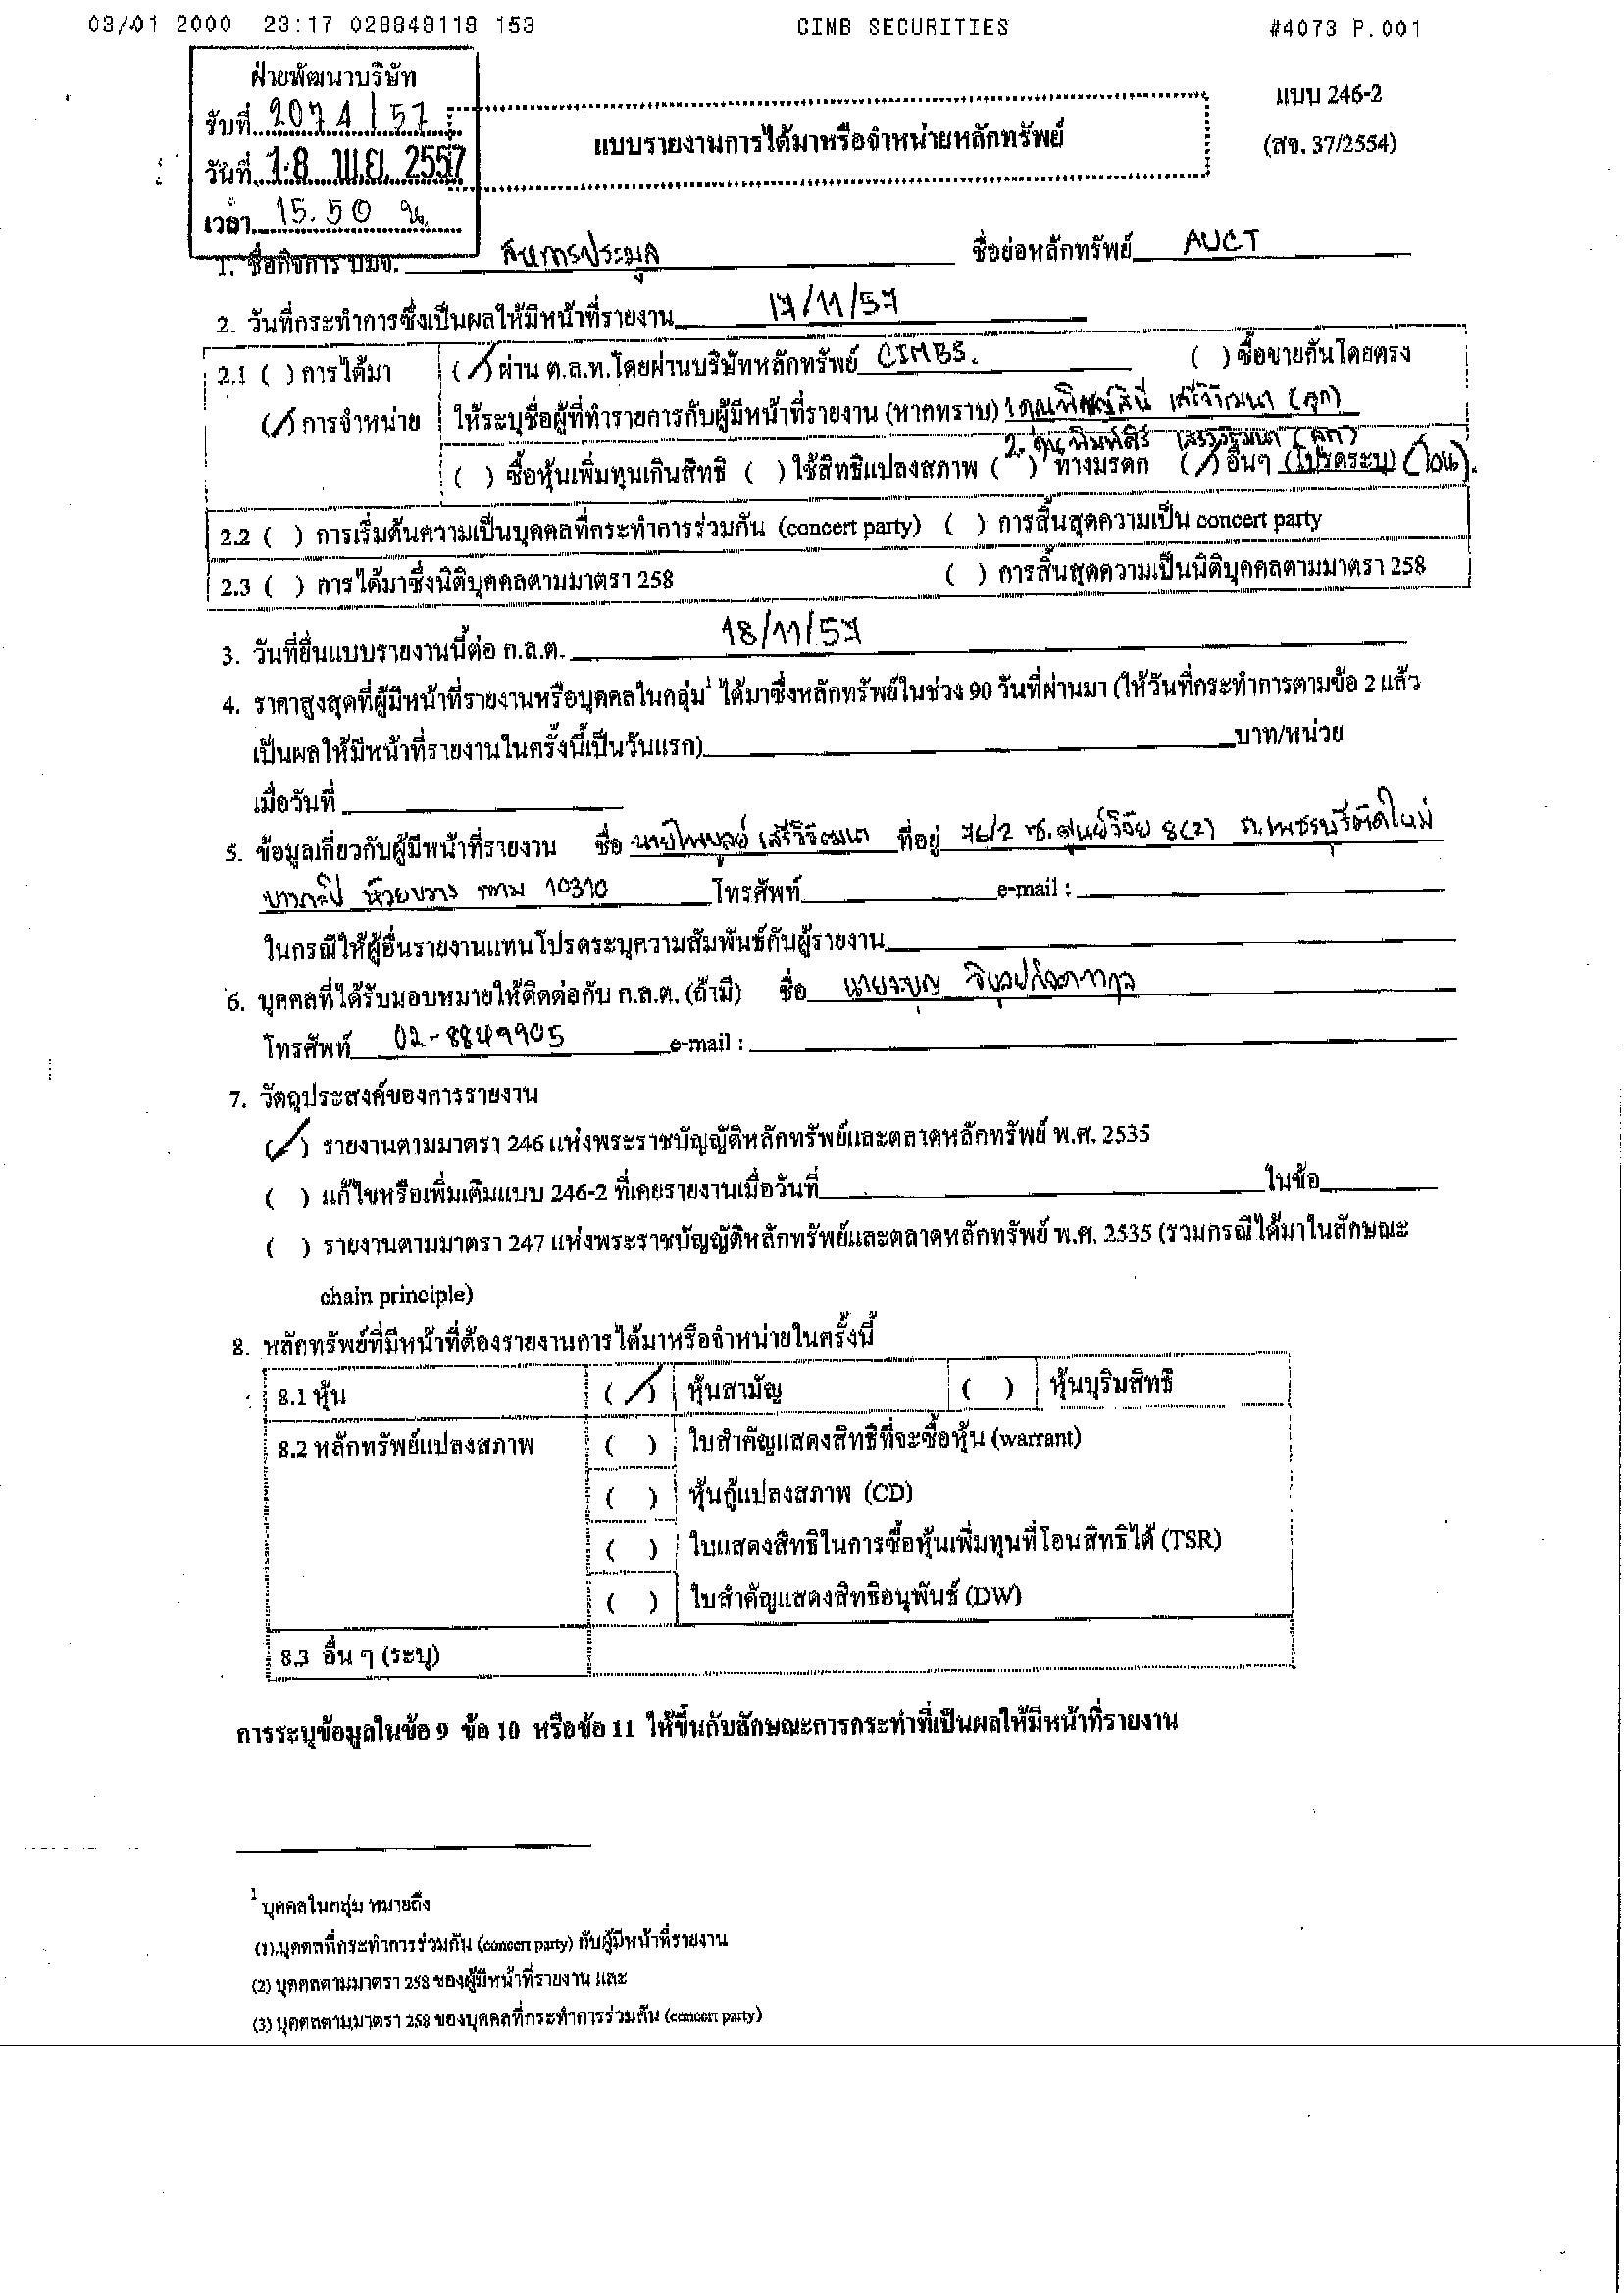 03/01 2000 23:17 028849119 153 CIMB SECURITIES #4073 P.001
ฝ่ายพัฒนาบริษัท
รับที่ 2074/57
วันที่ 18 พ.ย. 2557
เวลา 15.50 น.
แบบ 246-2
แบบรายงานการได้มาหรือจำหน่ายหลักทรัพย์ (สจ. 37/2554)
1. ชื่อกิจการ บมจ. สหการประมูล ชื่อย่อหลักทรัพย์ AUCT
2. วันที่กระทำการซึ่งเป็นผลให้มีหน้าที่รายงาน 17/11/57
2.1 ( ) การได้มา (/) ผ่าน ต.ล.ท.โดยผ่านบริษัทหลักทรัพย์ CIMBS. ( ) ซื้อขายกันโดยตรง
(/) การจำหน่าย ให้ระบุชื่อผู้ที่ทำรายการกับผู้มีหน้าที่รายงาน (หากทราบ) 1.คุณพิชญ์สินี เสรีวิวัฒนา (ลูก)
2. คุณพิมพ์สิริ เสรีวิวัฒนา (ลูก)
( ) ซื้อหุ้นเพิ่มทุนเกินสิทธิ ( ) ใช้สิทธิแปลงสภาพ ( ) ทางมรดก (/) อื่นๆ (โปรดระบุ) (โอน).
2.2 ( ) การเริ่มต้นความเป็นบุคคลที่กระทำการร่วมกัน (concert party) ( ) การสิ้นสุดความเป็น concert party
2.3 ( ) การได้มาซึ่งนิติบุคคลตามมาตรา 258 ( ) การสิ้นสุดความเป็นนิติบุคคลตามมาตรา 258
3. วันที่ยื่นแบบรายงานนี้ต่อ ก.ล.ต. 18/11/57
4. ราคาสูงสุดที่ผู้มีหน้าที่รายงานหรือบุคคลในกลุ่ม¹ ได้มาซึ่งหลักทรัพย์ในช่วง 90 วันที่ผ่านมา (ให้วันที่กระทำการตามข้อ 2 แล้ว
เป็นผลให้มีหน้าที่รายงานในครั้งนี้เป็นวันแรก) บาท/หน่วย
เมื่อวันที่
5. ข้อมูลเกี่ยวกับผู้มีหน้าที่รายงาน ชื่อ นายไพบูลย์ เสรีวิวัฒนา ที่อยู่ 76/2 ซ.ศูนย์วิจัย 8(2) ถ.เพชรบุรีตัดใหม่
บางกะปิ ห้วยขวาง กทม 10310 โทรศัพท์ e-mail :
ในกรณีให้ผู้อื่นรายงานแทนโปรดระบุความสัมพันธ์กับผู้รายงาน
6. บุคคลที่ได้รับมอบหมายให้ติดต่อกับ ก.ล.ต. (ถ้ามี) ชื่อ
โทรศัพท์ 02-8849905 e-mail :
7. วัตถุประสงค์ของการรายงาน
(/) รายงานตามมาตรา 246 แห่งพระราชบัญญัติหลักทรัพย์และตลาดหลักทรัพย์ พ.ศ. 2535
( ) แก้ไขหรือเพิ่มเติมแบบ 246-2 ที่เคยรายงานเมื่อวันที่ ในข้อ
( ) รายงานตามมาตรา 247 แห่งพระราชบัญญัติหลักทรัพย์และตลาดหลักทรัพย์ พ.ศ. 2535 (รวมกรณีได้มาในลักษณะ
chain principle)
8. หลักทรัพย์ที่มีหน้าที่ต้องรายงานการได้มาหรือจำหน่ายในครั้งนี้
8.1 หุ้น (/) หุ้นสามัญ ( ) หุ้นบุริมสิทธิ
8.2 หลักทรัพย์แปลงสภาพ ( ) ใบสำคัญแสดงสิทธิที่จะซื้อหุ้น (warrant)
( ) หุ้นกู้แปลงสภาพ (CD)
( ) ใบแสดงสิทธิในการซื้อหุ้นเพิ่มทุนที่โอนสิทธิได้ (TSR)
( ) ใบสำคัญแสดงสิทธิอนุพันธ์ (DW)
8.3 อื่น ๆ (ระบุ)
การระบุข้อมูลในข้อ 9 ข้อ 10 หรือข้อ 11 ให้ขึ้นกับลักษณะการกระทำที่เป็นผลให้มีหน้าที่รายงาน
¹ บุคคลในกลุ่ม หมายถึง
(1) บุคคลที่กระทำการร่วมกัน (concert party) กับผู้มีหน้าที่รายงาน
(2) บุคคลตามมาตรา 258 ของผู้มีหน้าที่รายงาน และ
(3) บุคคลตามมาตรา 258 ของบุคคลที่กระทำการร่วมกัน (concert party)